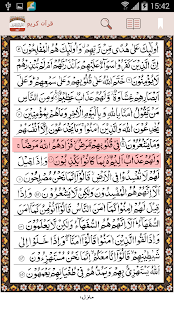 15:42
قرآن کریم
اُولٰٓئِكَ عَلٰى هُدًى مِّنْ رَّبِّهِمْ وَاُولٰٓئِكَ هُمُ الْمُفْلِحُوْنَ
اِنَّ الَّذِيْنَ كَفَرُوْا سَوَآءٌ عَلَيْهِمْ ءَاَنْذَرْتَهُمْ اَمْ لَمْ تُنْذِرْهُمْ
لَا يُؤْمِنُوْنَ خَتَمَ اللّٰهُ عَلٰى قُلُوْبِهِمْ وَعَلٰى سَمْعِهِمْ وَعَلٰٓى
اَبْصَارِهِمْ غِشَاوَةٌ وَّلَهُمْ عَذَابٌ عَظِيْمٌ وَمِنَ النَّاسِ
مَنْ يَّقُوْلُ اٰمَنَّا بِاللّٰهِ وَبِالْيَوْمِ الْاٰخِرِ وَمَا هُمْ بِمُؤْمِنِيْنَ
يُخٰدِعُوْنَ اللّٰهَ وَالَّذِيْنَ اٰمَنُوْا وَمَا يَخْدَعُوْنَ اِلَّآ اَنْفُسَهُمْ وَمَا
يَشْعُرُوْنَ فِيْ قُلُوْبِهِمْ مَّرَضٌ فَزَادَهُمُ اللّٰهُ مَرَضًا
وَلَهُمْ عَذَابٌ اَلِيْمٌ بِمَا كَانُوْا يَكْذِبُوْنَ وَاِذَا قِيْلَ
لَهُمْ لَا تُفْسِدُوْا فِي الْاَرْضِ قَالُوْٓا اِنَّمَا نَحْنُ مُصْلِحُوْنَ
اَلَآ اِنَّهُمْ هُمُ الْمُفْسِدُوْنَ وَلٰكِنْ لَّا يَشْعُرُوْنَ وَاِذَا قِيْلَ
لَهُمْ اٰمِنُوْا كَمَآ اٰمَنَ النَّاسُ قَالُوْٓا اَنُؤْمِنُ كَمَآ اٰمَنَ
السُّفَهَآءُ اَلَآ اِنَّهُمْ هُمُ السُّفَهَآءُ وَلٰكِنْ لَّا يَعْلَمُوْنَ
وَاِذَا لَقُوا الَّذِيْنَ اٰمَنُوْا قَالُوْٓا اٰمَنَّا وَاِذَا خَلَوْا اِلٰى
شَيٰطِيْنِهِمْ قَالُوْٓا اِنَّا مَعَكُمْ اِنَّمَا نَحْنُ مُسْتَهْزِءُوْنَ
اَللّٰهُ يَسْتَهْزِئُ بِهِمْ وَيَمُدُّهُمْ فِيْ طُغْيَانِهِمْ يَعْمَهُوْنَ